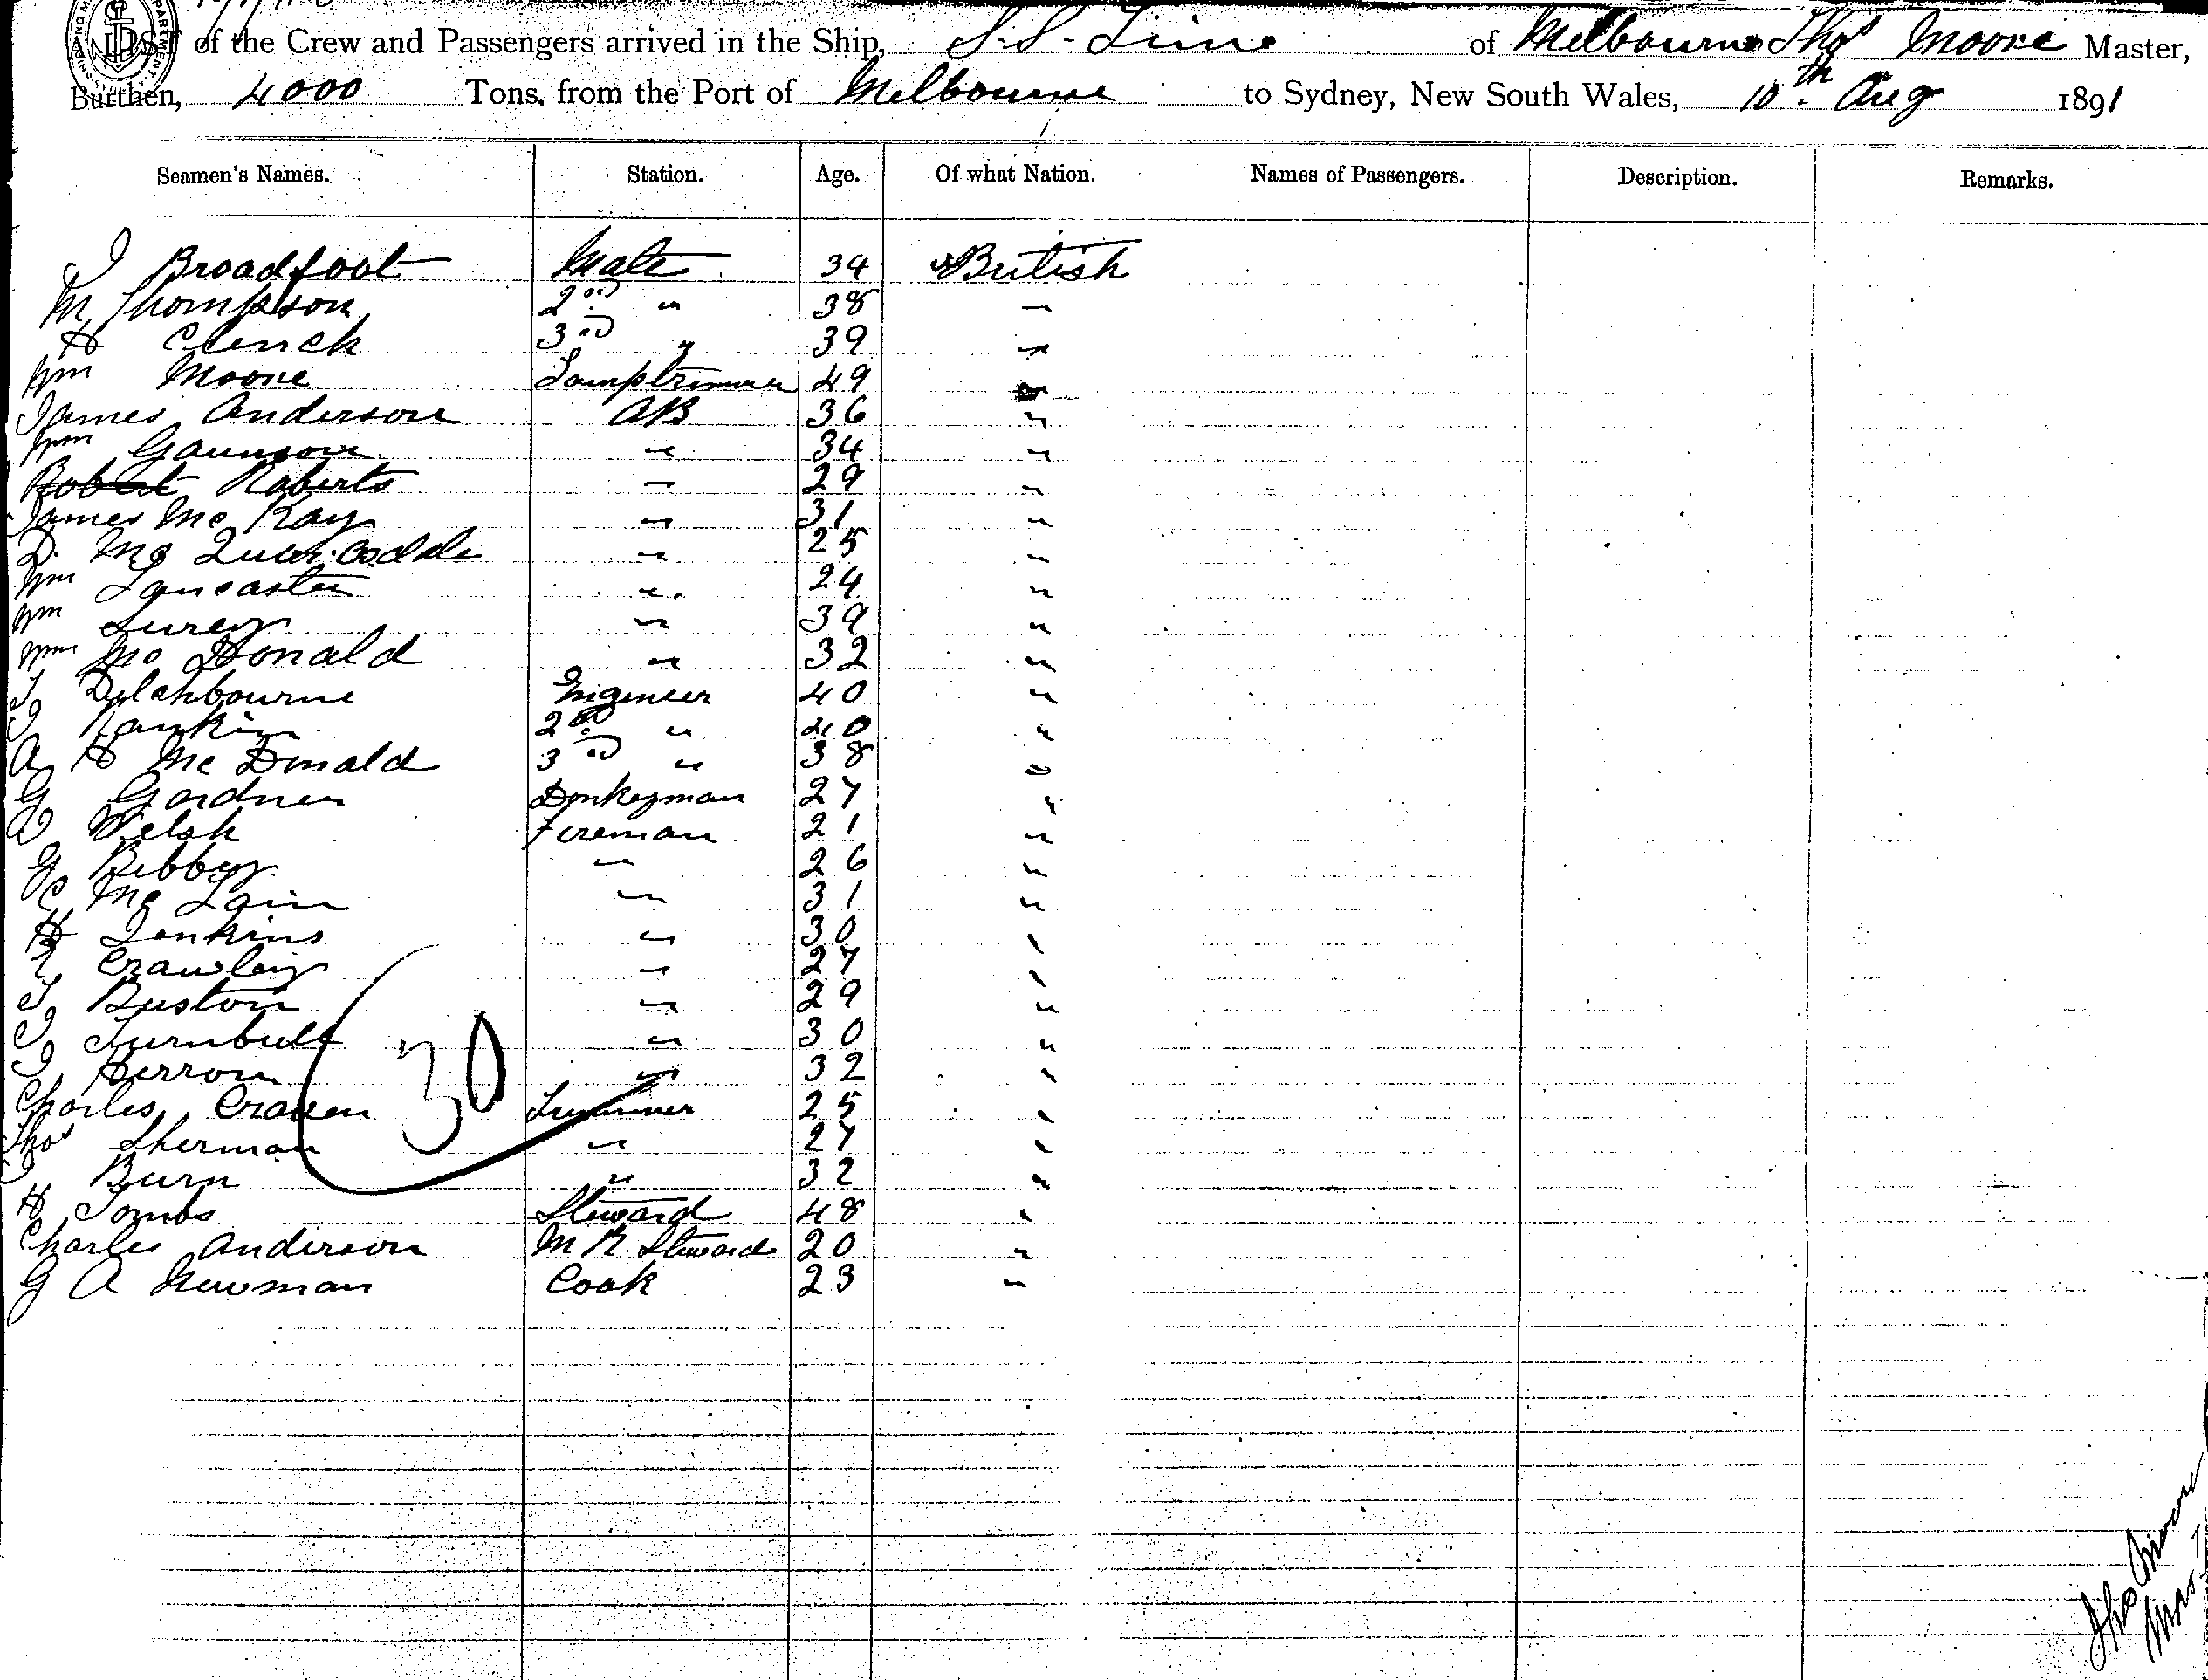 LIST of the Crew and Passengers arrived in the Ship, S.S. Time of Melbourne Thos Moore Master,
Burthen, 4000 Tons, from the Port of Melbourne to Sydney, New South Wales, 10th Aug 1891
Seamen's Names. Station. Age. Of what Nation. Names of Passengers. Description. Remarks.
J Broadfoot Mate 34 British
M Thompson 2nd " 38 "
H Clench 3rd " 39 "
Wm Moore Lamptrimmer 49 "
James Anderson AB 36 "
Wm Gaunson " 34 "
Robert Roberts " 29 "
James Mc Kay " 31 "
D. Mc " 25 "
Wm Lancaster " 24 "
Wm " 39 "
Wm Mc Donald " 32 "
J Ditchbourne Engineer 40 "
J Rankin 2nd " 40 "
A H Mc Donald 3rd " 38 "
G Gardner Donkeyman 27 "
W Welsh Fireman 21 "
G Bibby " 26 "
Mc Lain " 31 "
H Jenkins " 30 "
Crawley " 27 "
T Buston " 29 "
J Turnbull " 30 "
J Herron " 32 "
30
Charles Craven Trimmer 25 "
Thos Sherman " 27 "
J Burn " 32 "
H Tombs Steward 48 "
Charles Anderson M R Steward 20 "
G A Newman Cook 23 "
Thos Moore